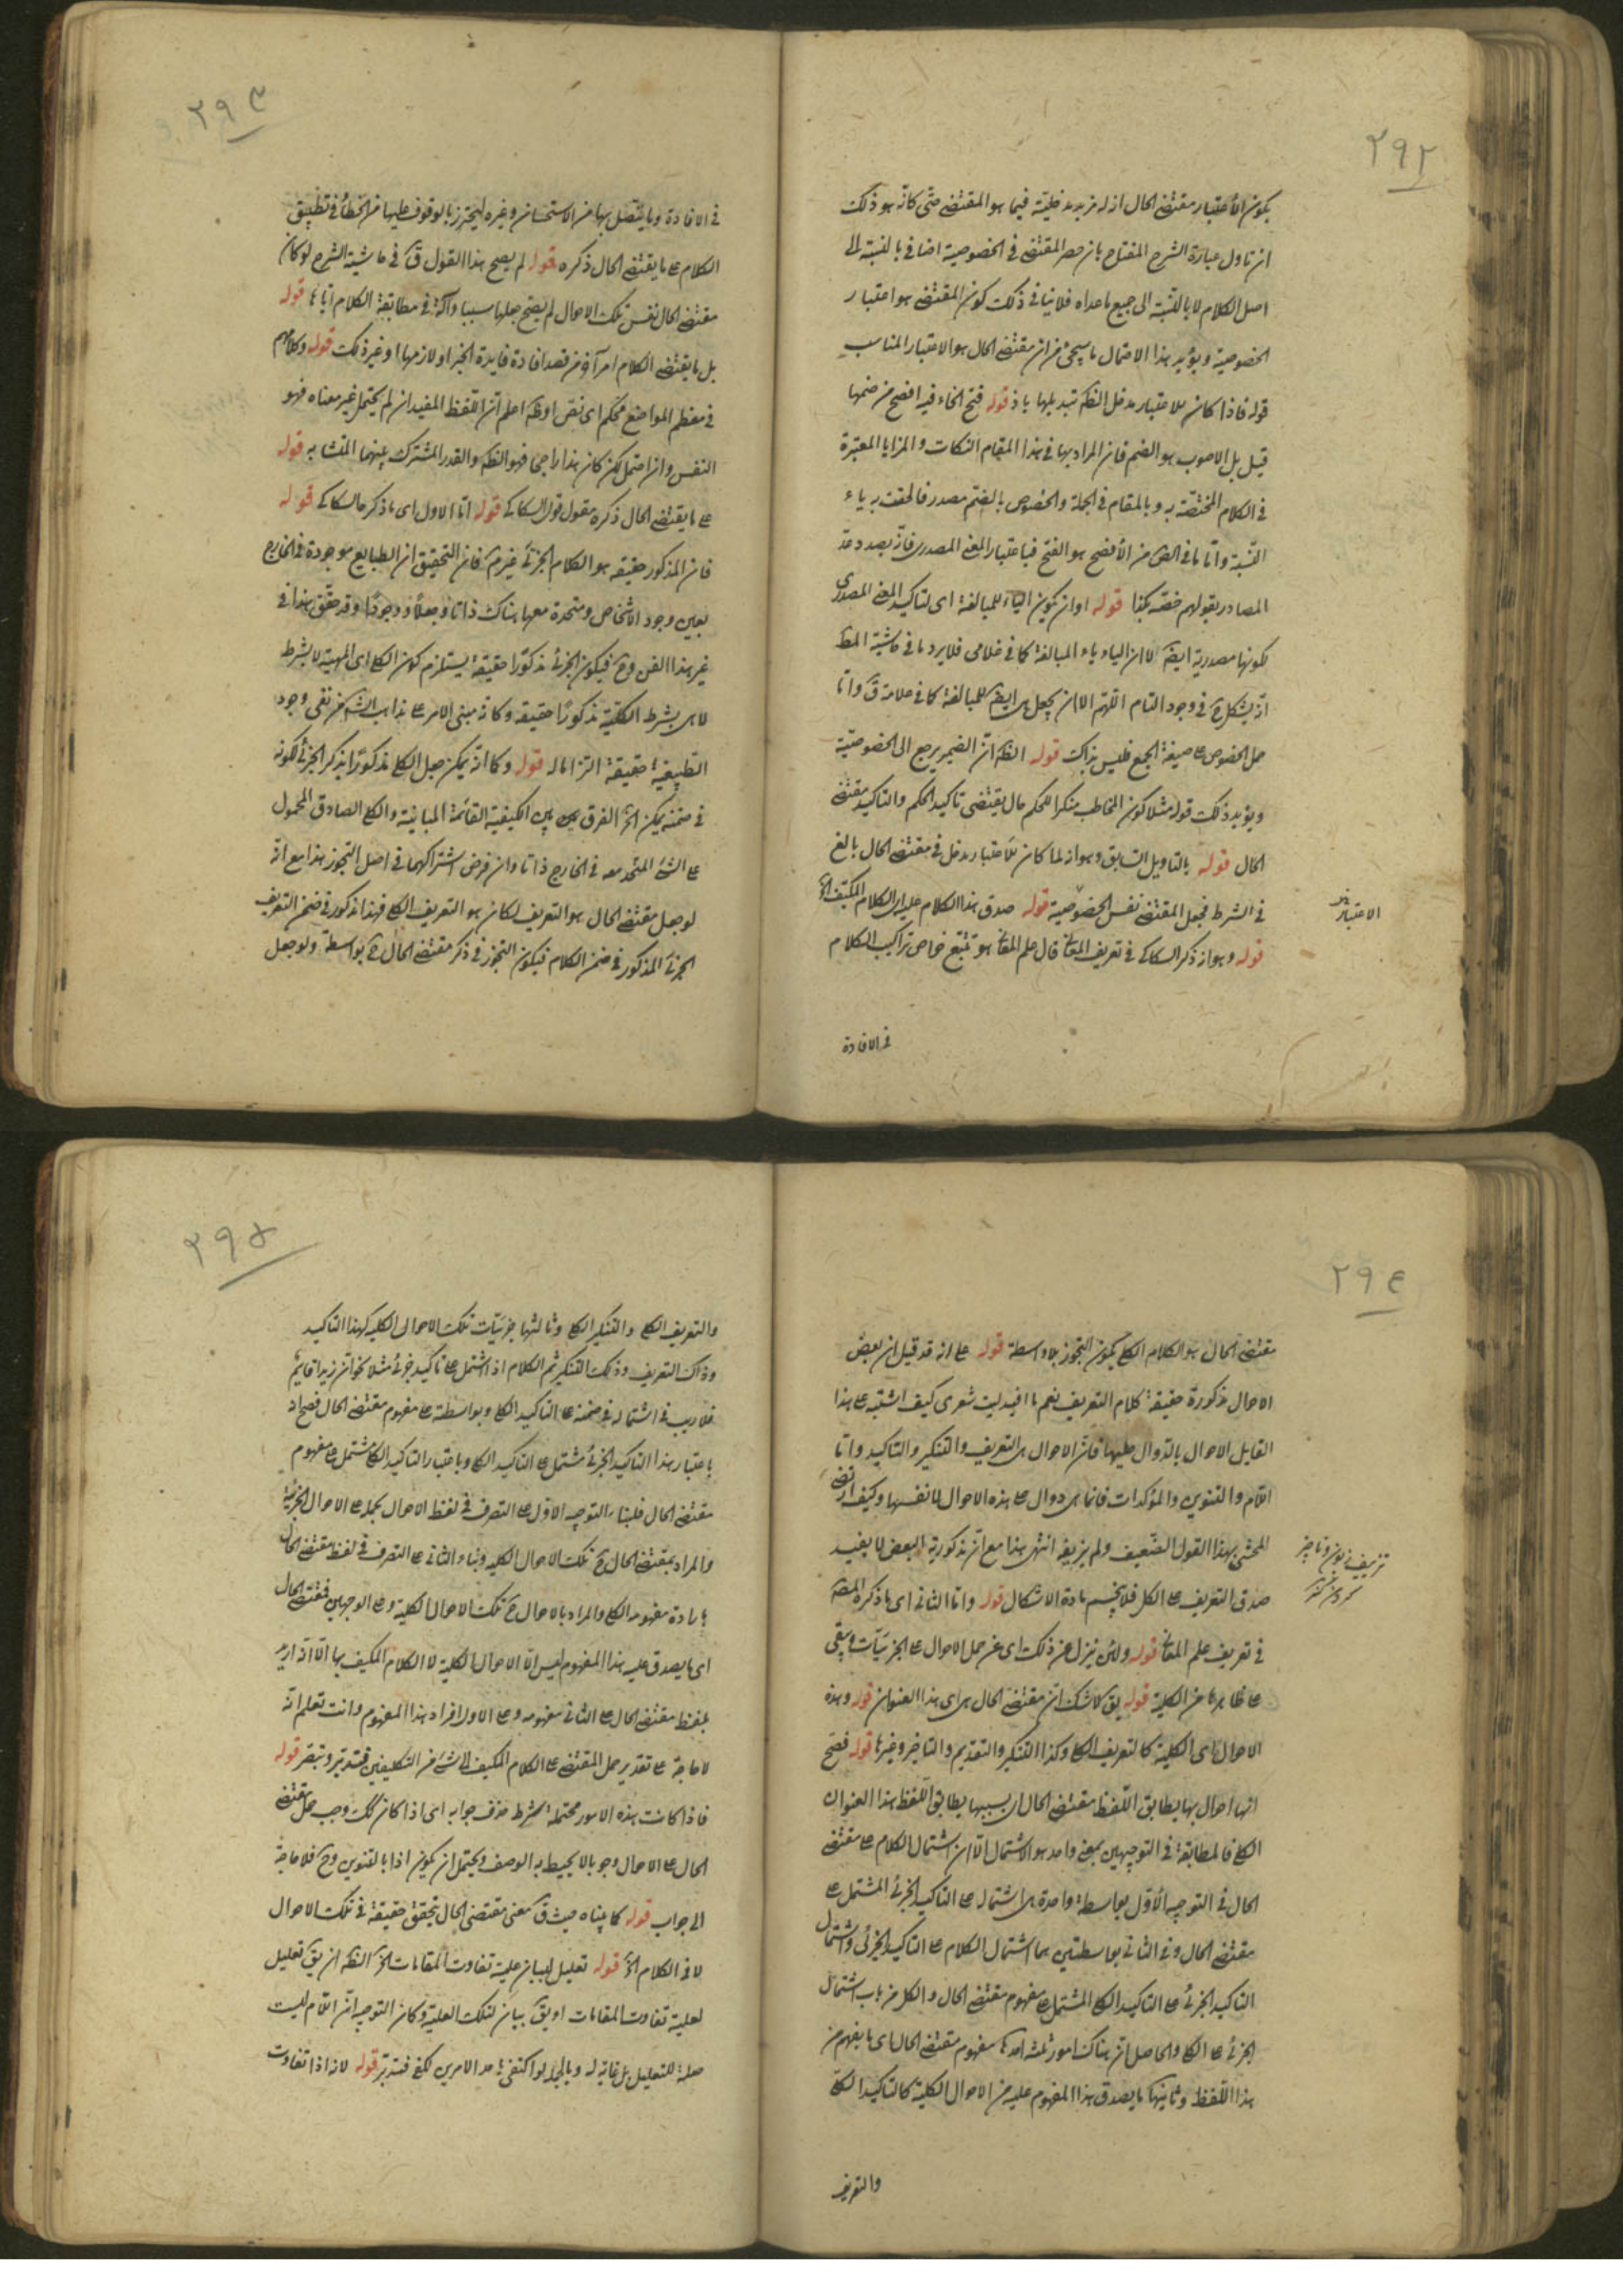 ٢٩٢
يكون الاعتبار مقتضى الحال اذ له مزيد مدخلية فيما هو المقتضى حتى كانه هو ذلك
ان تاول عبارة الشرح المفتاح بان حصر المقتضى فى الخصوصية اضافى بالنسبة الى
اصل الكلام لا بالنسبة الى جميع ما عداه فلا ينافى ذلك كون المقتضى هو اعتبار
الخصوصية ويؤيد هذا الاحتمال ما سيجئ من ان مقتضى الحال هو الاعتبار المناسب
قوله فاذا كان للاعتبار مدخل الظ تبديلها باذ قوله فتح الخاء فيه افصح من ضمها
قيل بل الاصوب هو الضم فان المراد بها فى هذا المقام النكات والمزايا المعتبرة
فى الكلام المختصة به وبالمقام فى الجملة والخصوص بالضم مصدر فالحقت به ياء
النسبة واما ما فى من الأفصح هو الفتح فباعتبار المعنى المصدرى فانه بصدد عد
المصادر بقولهم خصه بكذا قوله او ان يكون الياء للمبالغة اى لتاكيد المعنى المصدرى
لكونها مصدرية ايضا لا ان الياء ياء المبالغة كما فى غلامى فلا يرد ما فى حاشية المط
انه يشكل ح فى وجود التاء اللهم الا ان يجعل هى ايضا للمبالغة كما فى علامة ق واما
حمل الخصوص على صيغة الجمع فليس بذاك قوله الظ ان الضمير يرجع الى الخصوصية
ويؤيد ذلك قوله مثلا كون المخاطب منكرا للحكم حال يقتضى تاكيد الحكم والتاكيد مقتضى
الحال قوله بالتاويل السابق وهو انه لما كان للاعتبار مدخل فى مقتضى الحال بالغ
فى الشرط فجعل المقتضى نفس الخصوصية قوله صدق هذا الكلام عليه اى الكلام المكيف الخ
الاعتبار
قوله وهو انه ذكر السكاكى فى تعريف المعانى قال علم المعانى هو تتبع خواص تراكيب الكلام
فى الافادة
٢٩٣
فى الافادة وما يتصل بها من الاستحسان وغيره ليحترز بالوقوف عليها من الخطأ فى تطبيق
الكلام على ما يقتضى الحال ذكره قوله لم يصح هذا القول ق فى حاشية الشرح لو كان
مقتضى الحال نفس تلك الاحوال لم يصح جعلها سببا وآلة فى مطابقة الكلام اياها قوله
بل ما يقتضى الكلام امر آخر من قصد افادة فايدة الخبر او لازمها او غير ذلك قوله وكلامهم
فى معظم المواضع محكم اى نص او ظ اعلم ان اللفظ المفيد ان لم يحتمل غير معناه فهو
النص وان احتمل لكن كان هذا راجحا فهو الظ والقدر المشترك بينهما المتشابه قوله
على ما يقتضى الحال ذكره مقول قول السكاكى قوله اما الاول اى ما ذكره السكاكى قوله
فان المذكور حقيقة هو الكلام الجزئى غيرم فان التحقيق ان الطبايع موجودة فى الخارج
بعين وجود الاشخاص ومتحدة معها هناك ذاتا وجعلا ووجودا وقد حقق هذا فى
غير هذا الفن وح فيكون الجزئى مذكورا حقيقة يستلزم كون الكلى اى المهية لا بشرط
لا هى بشرط الكلية مذكورا حقيقة وكانه مبنى الامر على مذاهب من نفى وجود
الطبيعية حقيقة التزاما له قوله وكما انه يمكن جعل الكلى مذكورا بذكر الجزئى لكونه
فى ضمنه يمكن الخ الفرق بين الكيفية القائمة المباينة والكلى الصادق المحمول
على الشئ المتحد معه فى الخارج ذاتا وان فرض اشتراكهما فى اصل التجوز هذا مع انه
لو جعل مقتضى الحال هو التعريف لكان هو التعريف الكلى فهذا مذكور فى ضمن التعريف
الجزئى المذكور فى ضمن الكلام فيكون التجوز فى ذكر مقتضى الحال ح بواسطة ولو جعل
٢٩٤
مقتضى الحال هو الكلام الكلى يكون التجوز بلا واسطة قوله على انه قد قيل ان بعض
الاحوال مذكورة حقيقة كلام التعريف نعم ما افيد ليت شعرى كيف اشتبه على هذا
القايل الاحوال بالدوال عليها فان الاحوال هى التعريف والتنكير والتاكيد واما
اللام والتنوين والمؤكدات فانما هى دوال على هذه الاحوال لا نفسها وكيف ارتضى
المحشى بهذا القول الضعيف ولم يزيفه انتهى هذا مع ان مذكورية البعض لا يفيد
صدق التعريف على الكل فلا ينحسم مادة الاشكال قوله واما الثانى اى ما ذكره المص
فى تعريف علم المعانى قوله ولئن نزل عن ذلك اى عن حمل الاحوال على الجزئيات وبقى
على ظاهرها من الكلية قوله يق لا شك ان مقتضى الحال هى اى هذا العنوان قوله وهذه
الاحوال اى الكلية كالتعريف الكلى وكذا التنكير والتقديم والتاخير وغيرها قوله فصح
انها احوال بها يطابق اللفظ مقتضى الحال اى بسببها يطابق اللفظ هذا العنوان
الكلى فالمطابقة فى التوجيهين بمعنى واحد هو الاشتمال الا ان اشتمال الكلام على مقتضى
الحال فى التوجيه الأول بواسطة واحدة هى اشتماله على التاكيد الجزئى المشتمل على
مقتضى الحال وفى الثانى بواسطتين هما اشتمال الكلام على التاكيد الجزئى واشتمال
التاكيد الجزئى على التاكيد الكلى المشتمل على مفهوم مقتضى الحال والكل من باب اشتمال
الجزئى على الكلى والحاصل ان هناك امور ثلثة احدها مفهوم مقتضى الحال اى ما يفهم من
هذا اللفظ وثانيها ما يصدق هذا المفهوم عليه من الاحوال الكلية كالتاكيد الكلى
والتعريف
٢٩٥
والتعريف الكلى والتنكير الكلى وثالثها جزئيات تلك الاحوال الكلية كهذا التاكيد
وذاك التعريف وذلك التنكير ثم الكلام اذا اشتمل على تاكيد جزئى مثلا نحو ان زيدا قايم
فلا ريب فى اشتماله فى ضمنه على التاكيد الكلى وبواسطته على مفهوم مقتضى الحال فصح اد
باعتبار هذا التاكيد الجزئى مشتمل على التاكيد الكلى وباعتبار التاكيد الكلى مشتمل على مفهوم
مقتضى الحال فلبناء التوجيه الاول على التصرف فى لفظ الاحوال بحمله على الاحوال الجزئية
والمراد بمقتضى الحال ح تلك الاحوال الكلية وبناء الثانى على التصرف فى لفظ مقتضى الحال
بارادة مفهومه الكلى والمراد بالاحوال ح تلك الاحوال الكلية وعلى الوجهين فمقتضى الحال
اى ما يصدق عليه هذا المفهوم ليس الا الاحوال الكلية لا الكلام المكيف بها الا انه اريد
بلفظ مقتضى الحال على الثانى مفهومه وعلى الاول افراد هذا المفهوم وانت تعلم انه
لا حاجة على تقدير حمل المقتضى على الكلام المكيف الى شئ من التكليفين فتدبر وتبصر قوله
فاذا كانت هذه الامور محتملة شرط حذف جوابه اى اذا كان كك وجب حمل مقتضى
الحال على الاحوال وجوبا لا يحيط به الوصف ويحتمل ان يكون اذا بالتنوين وح فلا حاجة
الى جواب قوله كما بيناه حيث ق معنى مقتضى الحال يتحقق حقيقة فى تلك الاحوال
لا فى الكلام الخ قوله تعليل لبيان علية تفاوت المقامات الخ الظ ان يق تعليل
لعلية تفاوت المقامات او يق بيان لتلك العلية وكان التوجيه ان اللام ليست
صلة للتعليل بل غاية له وبالجملة لو اكتفى باحد الامرين لكفى فتدبر قوله لانه اذا تفاوت